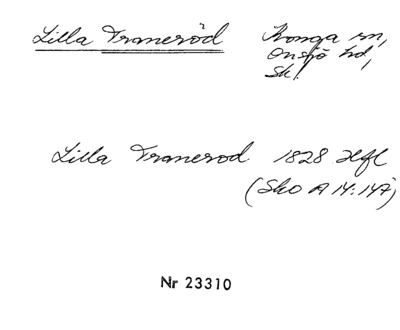 Lilla Traneröd Konga sn,
Onsjö hd,
Sk.
Lilla Tranerod 1828 Hfl
(Sko A 14:147)
Nr 23310